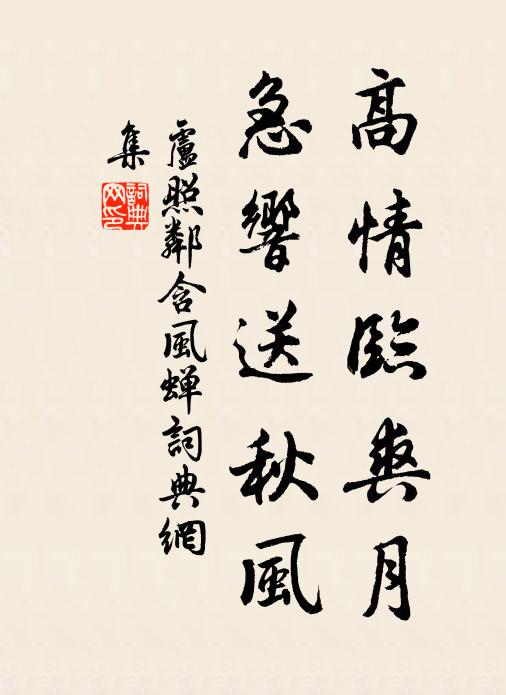 高情臨爽月
急響送秋風
盧照鄰含風蟬詞典網
集
詞典網印